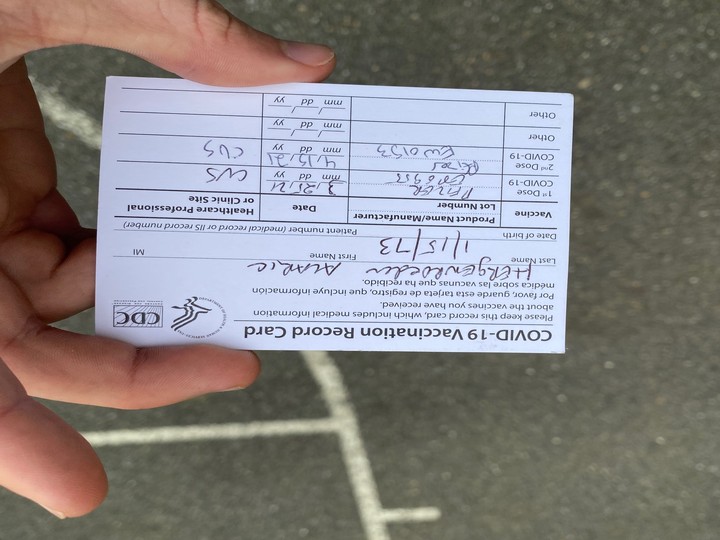 COVID-19 Vaccination Record Card
Please keep this record card, which includes medical information
about the vaccines you have received.
Por favor, guarde esta tarjeta de registro, que incluye información
médica sobre las vacunas que ha recibido.
CDC
HERgENROEDER ALARIC
Last Name First Name MI
1/15/73
Date of birth Patient number (medical record or IIS record number)
Vaccine Product Name/Manufacturer Lot Number Date Healthcare Professional or Clinic Site
1st Dose COVID-19 PFIZER 3,25,21 mm dd yy CVS
2nd Dose COVID-19 EW0153 4,15,21 mm dd yy CVS
Other / / mm dd yy
Other / / mm dd yy